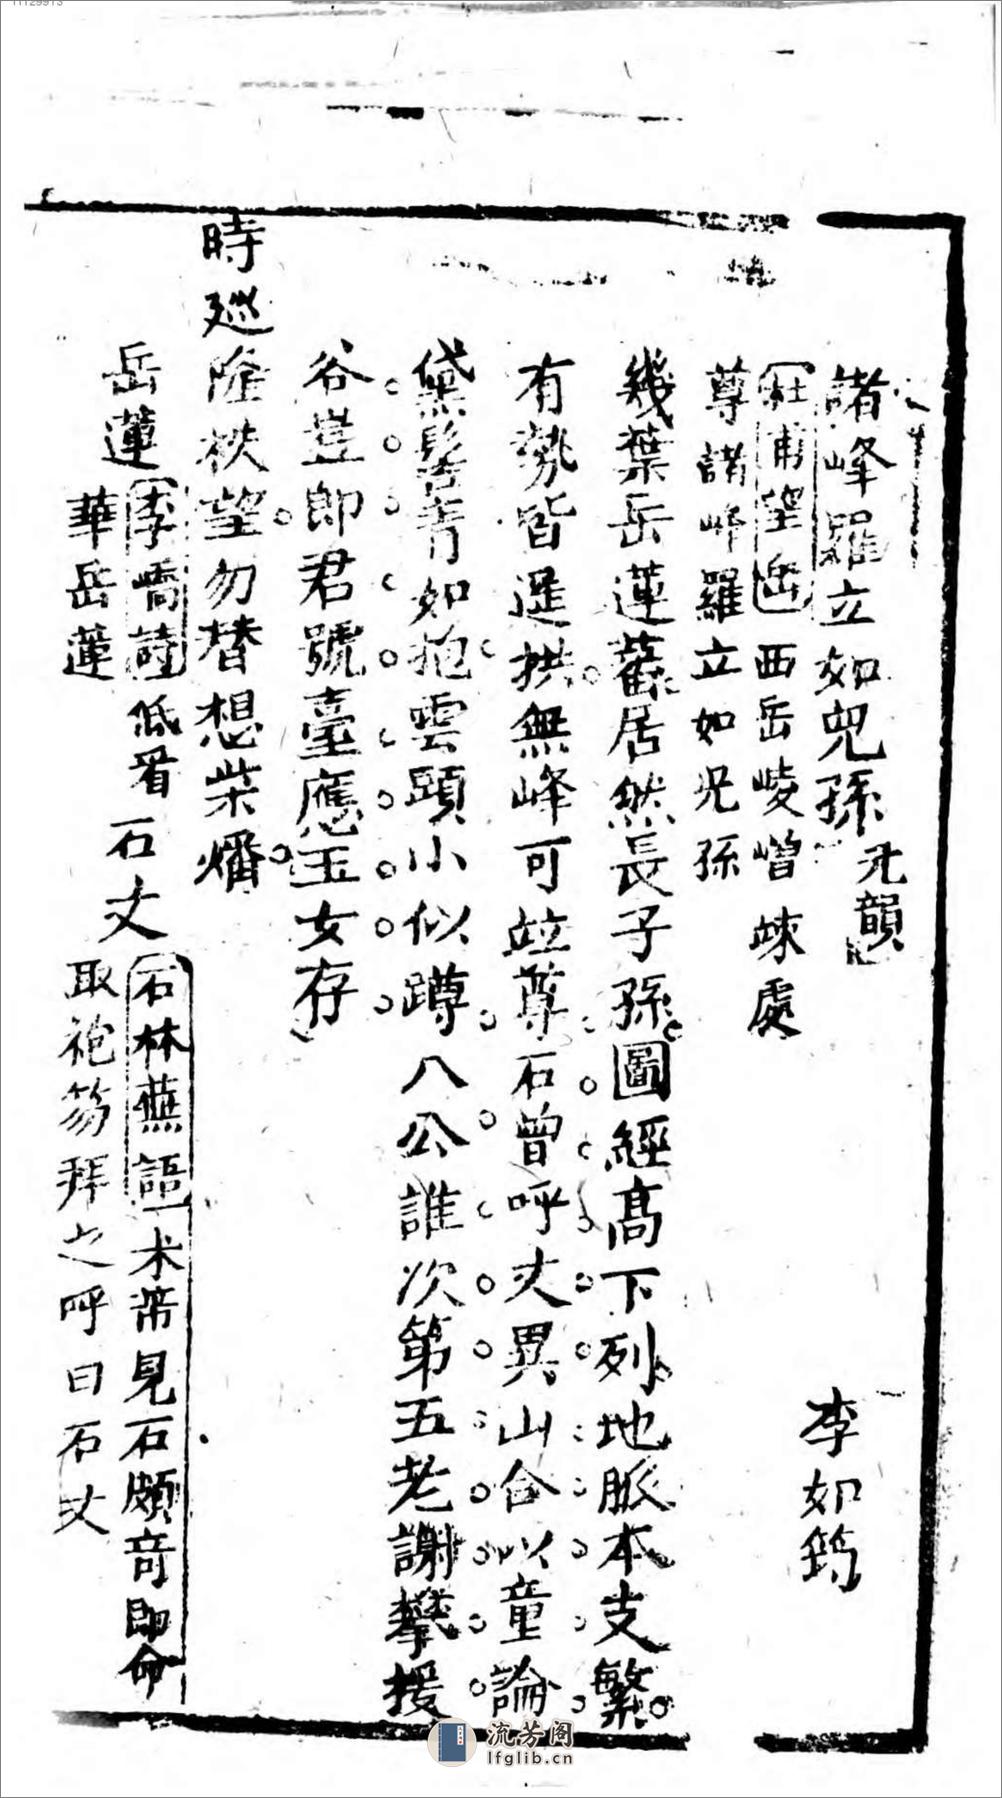 諸峰羅立如兒孫 元韻
李如筠
杜甫望岳 西岳崚嶒竦處
尊諸峰羅立如兒孫
幾葉岳蓮舊居然長子孫圖經高下列地脈本支繁
有勢皆遙拱無峰可竝尊石曾呼丈異山合以童論
黛髻青如抱雲頭小似蹲八公誰次第五老謝攀援
谷豈郎君號臺應玉女存
時巡隆秩望勿替想柴燔
岳蓮 李嶠詩 低看
華岳蓮
石丈 石林燕語 米芾見石頗奇即命
取袍笏拜之呼曰石丈
流芳阁
lfglib.cn